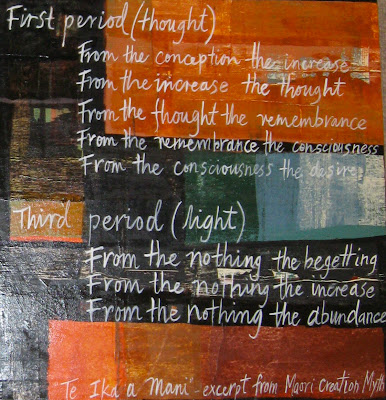 First period (thought)
From the conception the increase
From the increase the thought
From the thought the remembrance
From the remembrance the consciousness
From the consciousness the desire
Third period (light)
From the nothing the begetting
From the nothing the increase
From the nothing the abundance
Te Ika a Mani" - excerpt from Maori Creation Myth